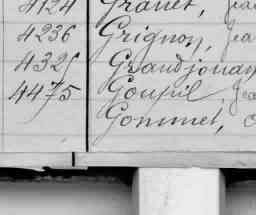 4124 Granet,
4236 Grignon, Jea
4325 Grandjouan
4475 Goupil, Jea
Gommet,